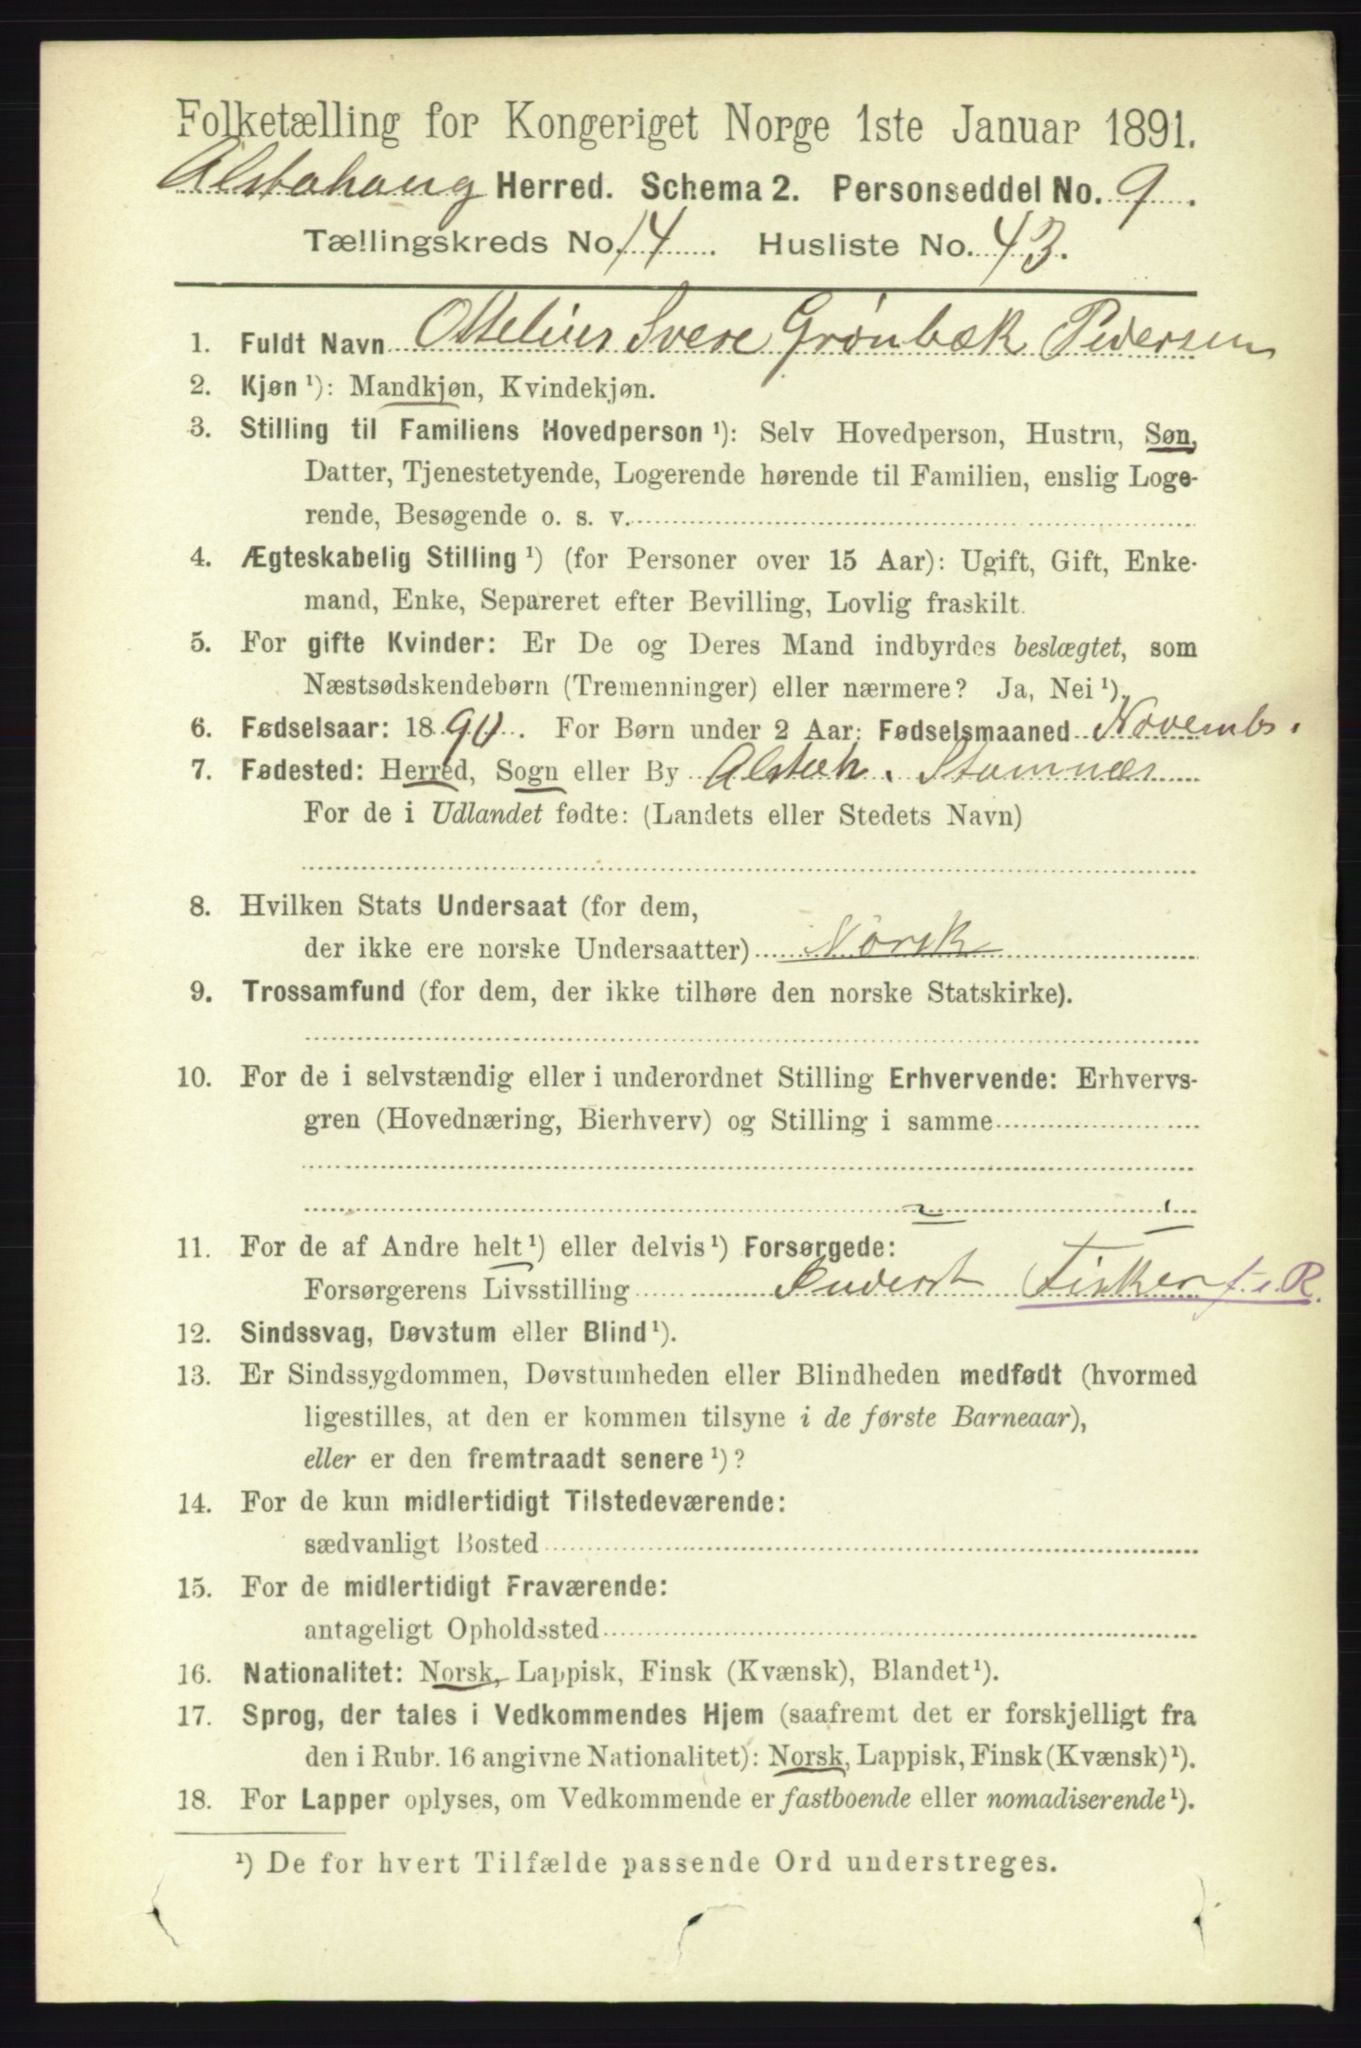 Folketælling for Kongeriget Norge 1ste Januar 1891.
Alstahaug Herred. Schema 2. Personseddel No. 9.
Tællingskreds No. 14. Husliste No. 43.
1. Fuldt Navn Ottelius Svere Grönbæk Pedersen
2. Kjøn¹): Mandkjøn, Kvindekjøn.
3. Stilling til Familiens Hovedperson¹): Selv Hovedperson, Hustru, Søn,
Datter, Tjenestetyende, Logerende hørende til Familien, enslig Loge-
rende, Besøgende o. s. v.
4. Ægteskabelig Stilling¹) (for Personer over 15 Aar): Ugift, Gift, Enke-
mand, Enke, Separeret efter Bevilling, Lovlig fraskilt.
5. For gifte Kvinder: Er De og Deres Mand indbyrdes beslægtet, som
Næstsødskendebørn (Tremenninger) eller nærmere? Ja, Nei¹).
6. Fødselsaar: 1890. For Børn under 2 Aar: Fødselsmaaned Novemb.
7. Fødested: Herred, Sogn eller By Alstah. Stamnæs
For de i Udlandet fødte: (Landets eller Stedets Navn)
8. Hvilken Stats Undersaat (for dem,
der ikke ere norske Undersaatter) Norsk
9. Trossamfund (for dem, der ikke tilhøre den norske Statskirke).
10. For de i selvstændig eller i underordnet Stilling Erhvervende: Erhvervs-
gren (Hovednæring, Bierhverv) og Stilling i samme
2 1
11. For de af Andre helt¹) eller delvis¹) Forsørgede:
Forsørgerens Livsstilling Inderst Fisker f. e. R.
12. Sindssvag, Døvstum eller Blind¹).
13. Er Sindssygdommen, Døvstumheden eller Blindheden medfødt (hvormed
ligestilles, at den er kommen tilsyne i de første Barneaar),
eller er den fremtraadt senere¹)?
14. For de kun midlertidigt Tilstedeværende:
sædvanligt Bosted
15. For de midlertidigt Fraværende:
antageligt Opholdssted
16. Nationalitet: Norsk, Lappisk, Finsk (Kvænsk), Blandet¹).
17. Sprog, der tales i Vedkommendes Hjem (saafremt det er forskjelligt fra
den i Rubr. 16 angivne Nationalitet): Norsk, Lappisk, Finsk (Kvænsk)¹).
18. For Lapper oplyses, om Vedkommende er fastboende eller nomadiserende¹).
¹) De for hvert Tilfælde passende Ord understreges.